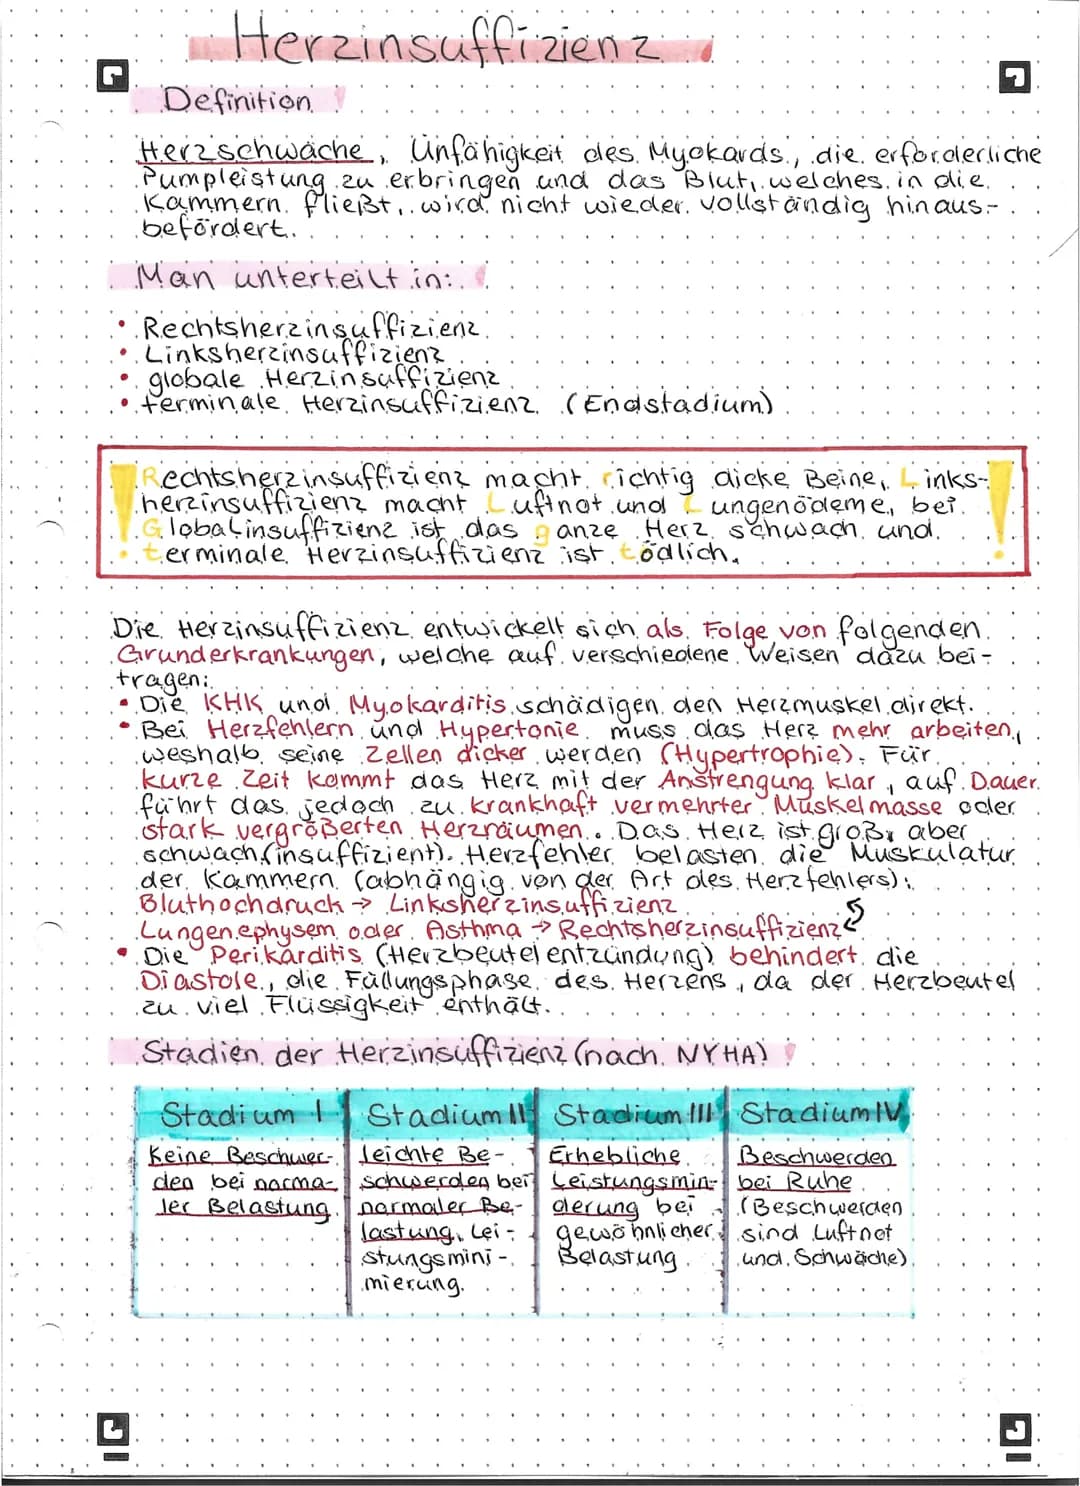 Herzinsuffizienz
Definition
Herzschwäche, Unfähigkeit des Myokards, die erforderliche
Pumpleistung zu erbringen und das Blut, welches in die
Kammern fließt, wird nicht wieder vollständig hinaus-
befördert.
Man unterteilt in:
• Rechtsherzinsuffizienz
• Linksherzinsuffizienz
• globale Herzinsuffizienz
• terminale Herzinsuffizienz (Endstadium)
! Rechtsherzinsuffizienz macht richtig dicke Beine, Links- !
herzinsuffizienz macht Luftnot und Lungenödeme, bei
Globalinsuffizienz ist das ganze Herz schwach und
terminale Herzinsuffizienz ist tödlich.
Die Herzinsuffizienz entwickelt sich als Folge von folgenden
Grunderkrankungen, welche auf verschiedene Weisen dazu bei-
tragen:
• Die KHK und Myokarditis schädigen den Herzmuskel direkt.
• Bei Herzfehlern und Hypertonie muss das Herz mehr arbeiten,
weshalb seine Zellen dicker werden (Hypertrophie). Für
kurze Zeit kommt das Herz mit der Anstrengung klar, auf Dauer
führt das jedoch zu krankhaft vermehrter Muskelmasse oder
stark vergrößerten Herzräumen. Das Herz ist groß, aber
schwach (insuffizient). Herzfehler belasten die Muskulatur
der Kammern (abhängig von der Art des Herzfehlers):
Bluthochdruck → Linksherzinsuffizienz
Lungenephysem oder Asthma → Rechtsherzinsuffizienz
• Die Perikarditis (Herzbeutelentzündung) behindert die
Diastole, die Füllungsphase des Herzens, da der Herzbeutel
zu viel Flüssigkeit enthält.
Stadien der Herzinsuffizienz (nach NYHA)
Stadium I Stadium II Stadium III Stadium IV
Keine Beschwer- leichte Be- Erhebliche Beschwerden
den bei norma- schwerden bei Leistungsmin- bei Ruhe
ler Belastung normaler Be- derung bei (Beschwerden
lastung, Lei- gewöhnlicher sind Luftnot
stungsmini- Belastung und Schwäche)
mierung.